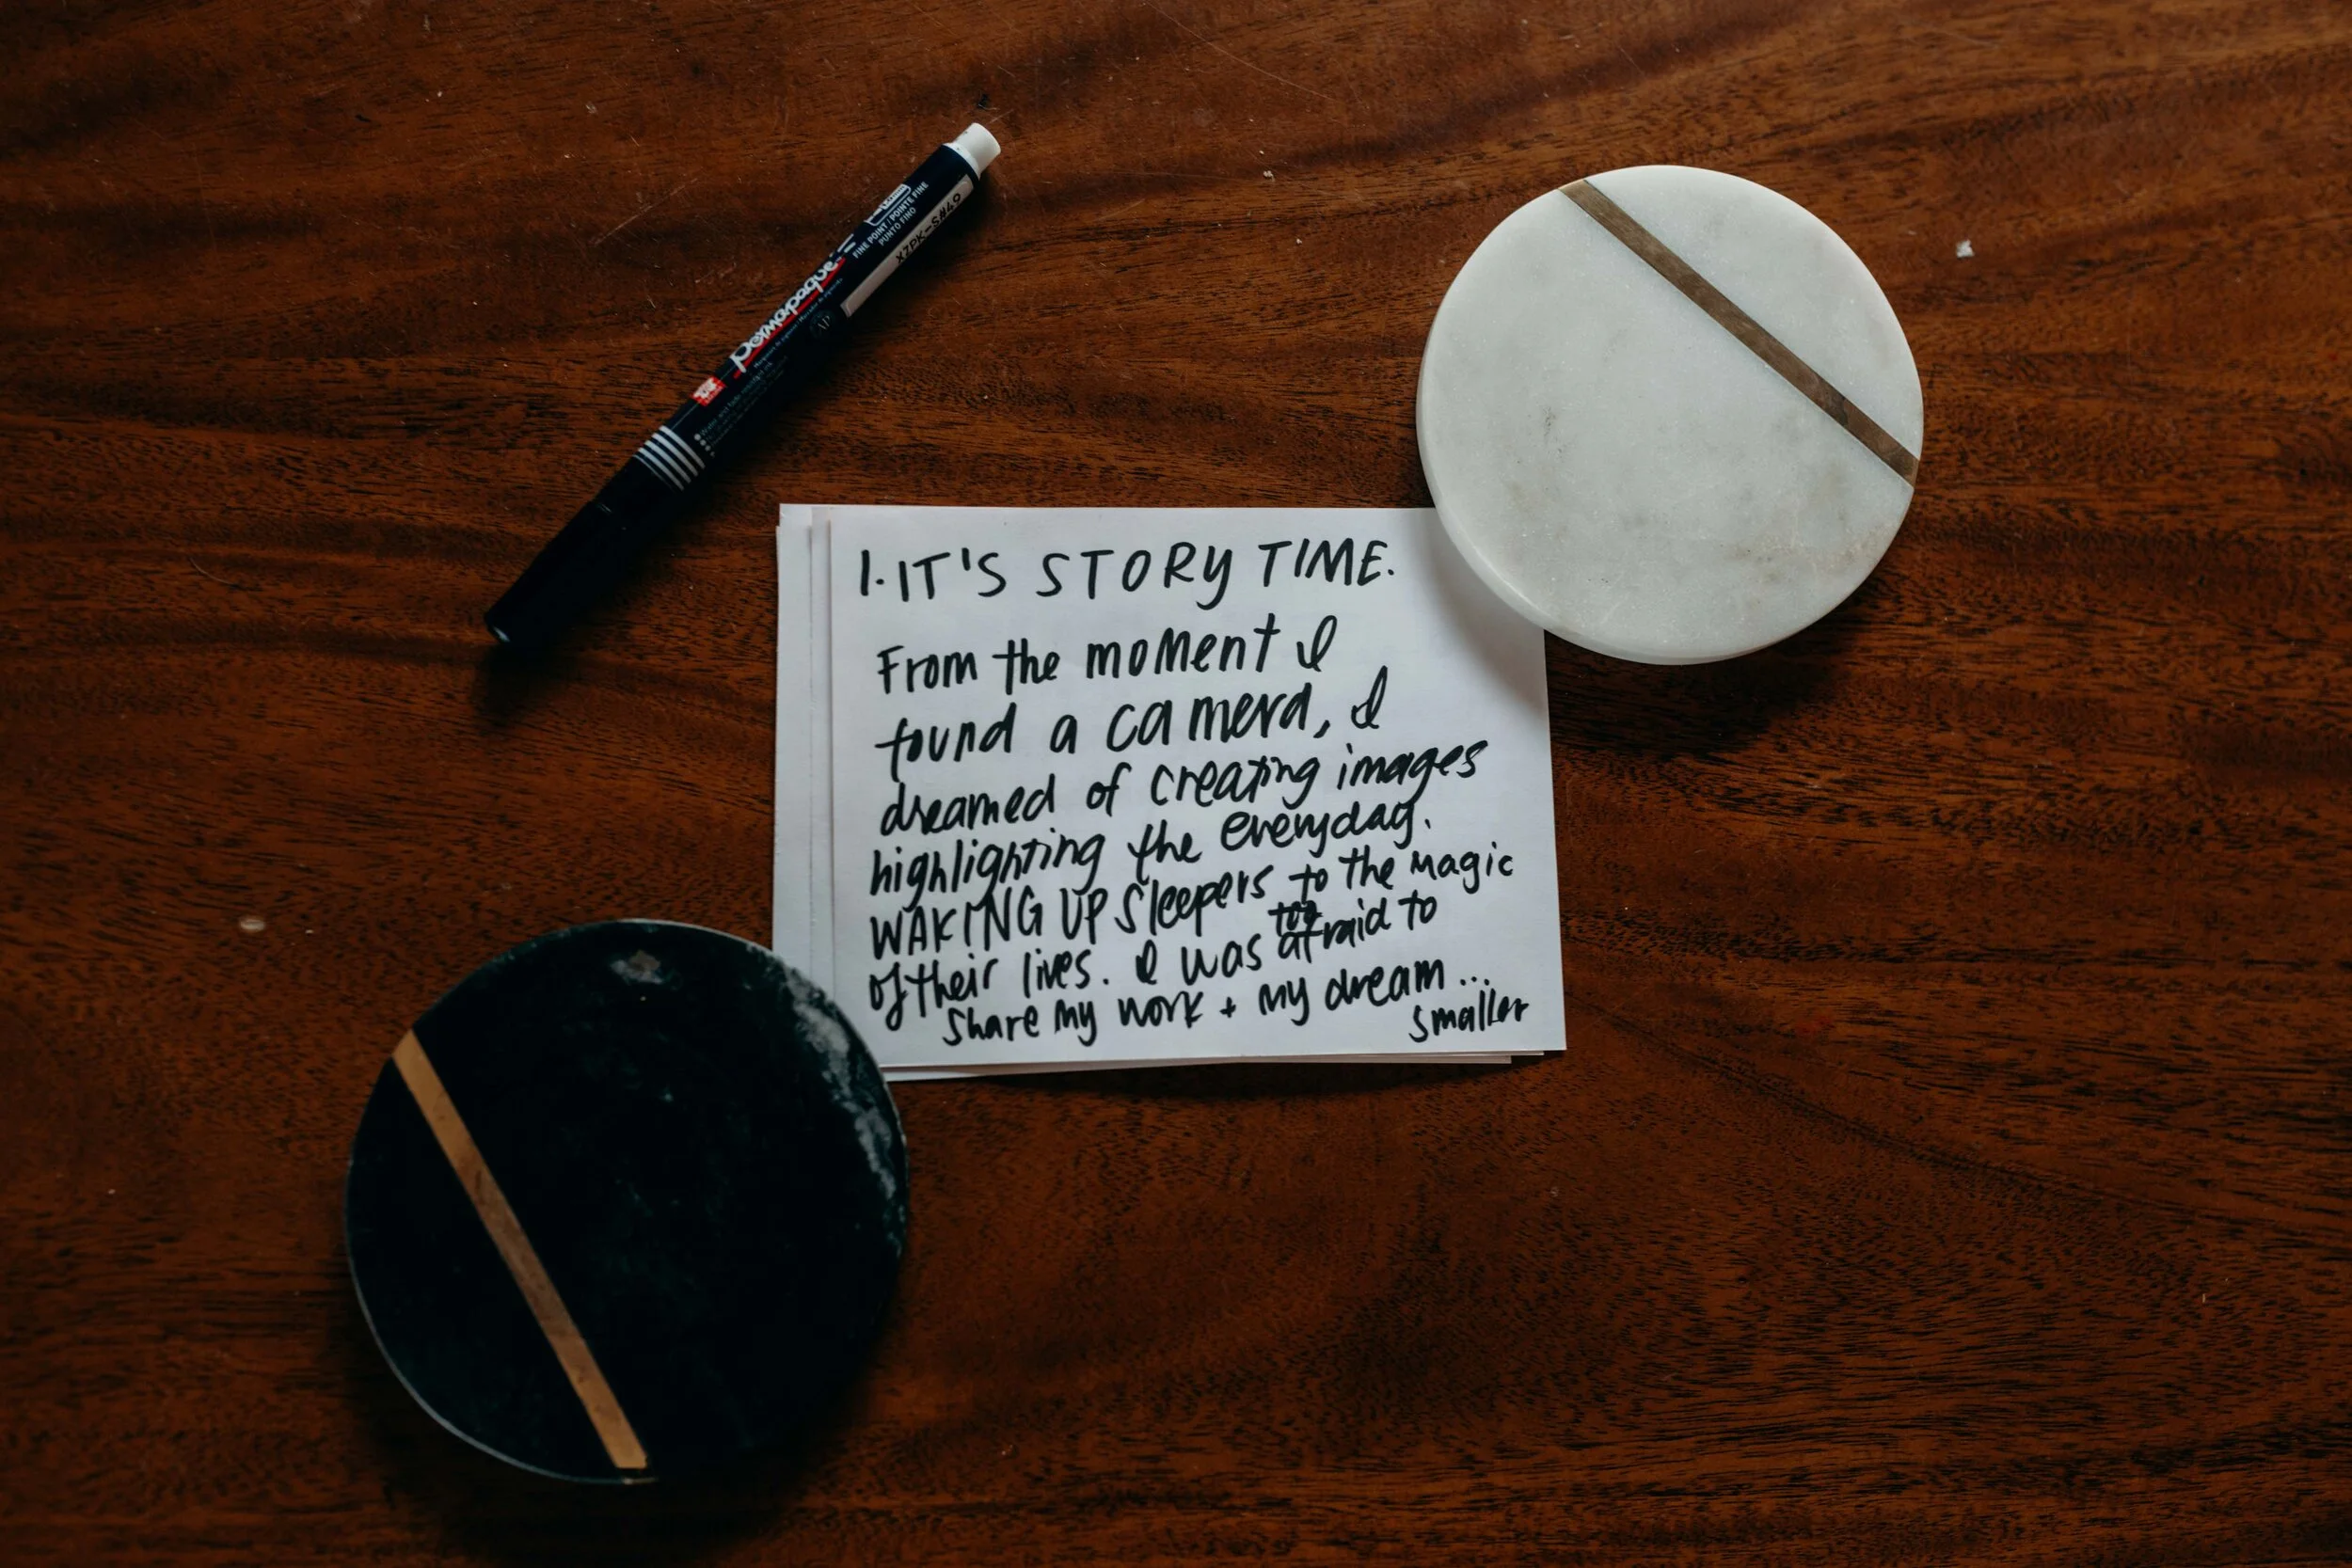 Sakura
FINE POINT / POINTE FINE
PUNTO FINO
XZPK-S#49
permapaque
1. IT'S STORY TIME.
From the moment I
found a camera, I
dreamed of creating images
highlighting the everyday.
WAKING UP sleepers to the magic
of their lives. I was too afraid to
share my work + my dream...
smaller